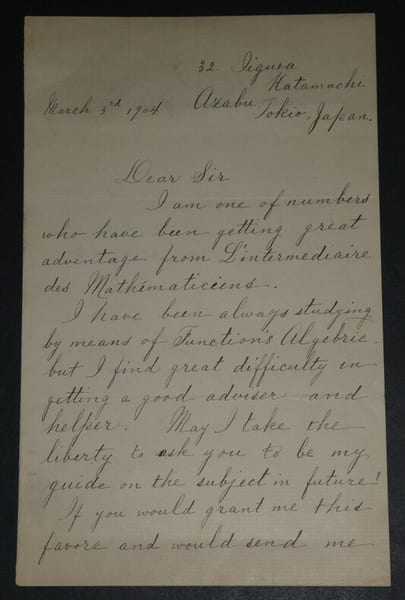 32. Iigura
Katamachi
March 3rd 1904 Azabu
Tokio, Japan.
Dear Sir
I am one of numbers
who have been getting great
adventage from L'intermediaire
des Mathématiciens.
I have been always studying
by means of Function's Algebric.
but I find great difficulty in
getting a good adviser and
helper. May I take the
liberty to ask you to be my
guide on the subject in future!
If you would grant me this
favore and would send me